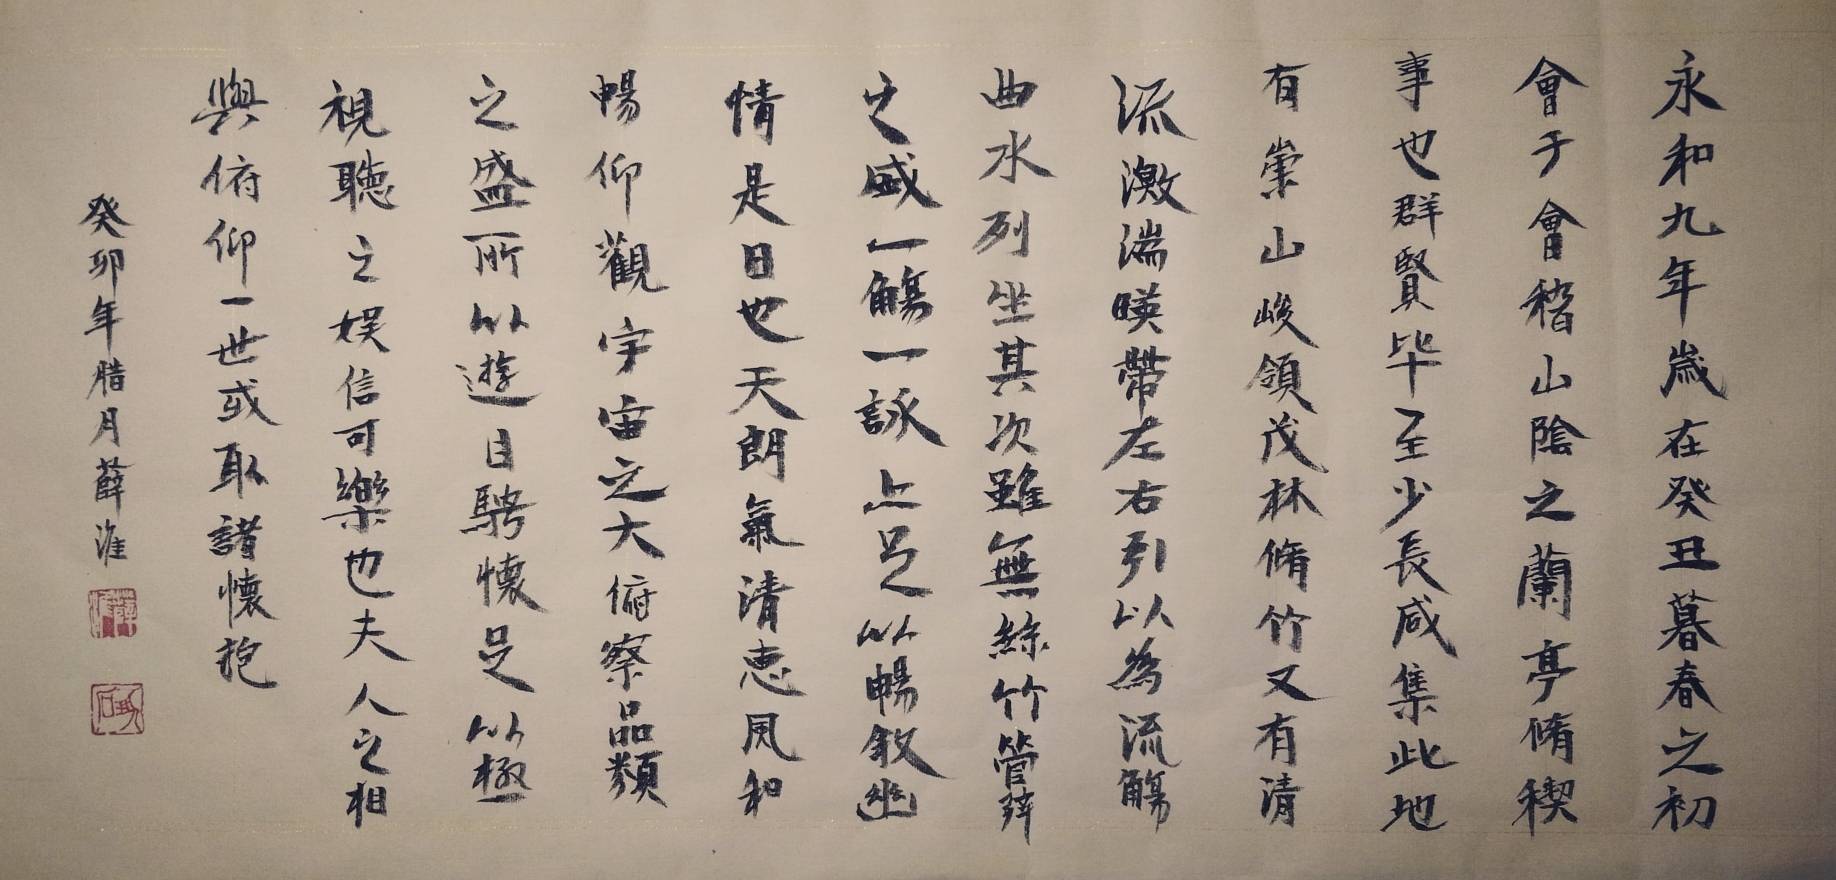 永和九年歲在癸丑暮春之初
會于會稽山陰之蘭亭脩稧
事也群賢毕至少長咸集此地
有崇山峻領茂林脩竹又有清
流激湍暎帶左右引以為流觴
曲水列坐其次雖無絲竹管弦
之盛一觴一詠亦足以暢敘幽
情是日也天朗氣清恵風和
暢仰觀宇宙之大俯察品類
之盛所以遊目騁懷足以極
視聽之娱信可樂也夫人之相
與俯仰一世或取諸懷抱
癸卯年腊月薛淮